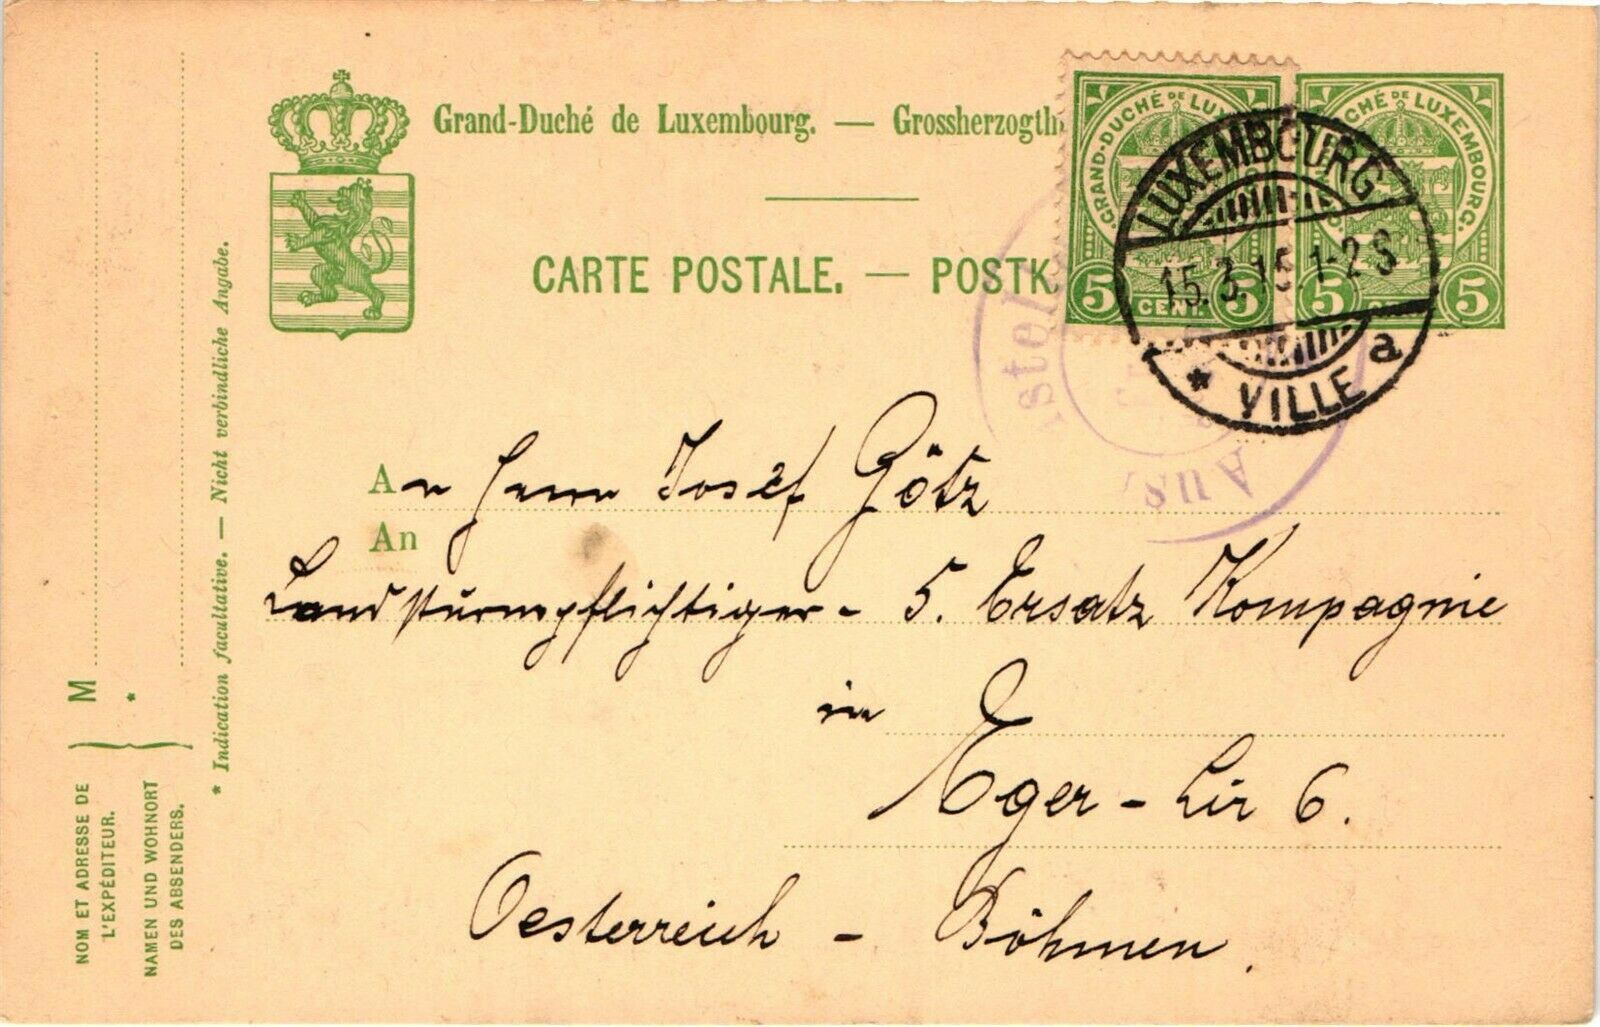 Grand-Duché de Luxembourg. — Grossherzogth
CARTE POSTALE. — POSTK
GRAND-DUCHÉ DE LUX
5 CENT. 5
CHÉ DE LUXEMBOURG.
5 5
LUXEMBOURG
15.3.15 1-2 S
* VILLE a
An Herrn Josef Götz
An
Landsturmpflichtiger - 5. Ersatz Kompagnie
in
Eger - Lir 6.
Oesterreich - Böhmen.
* Indication facultative. — Nicht verbindliche Angabe.
M
*
NOM ET ADRESSE DE
L'EXPÉDITEUR.
NAMEN UND WOHNORT
DES ABSENDERS.